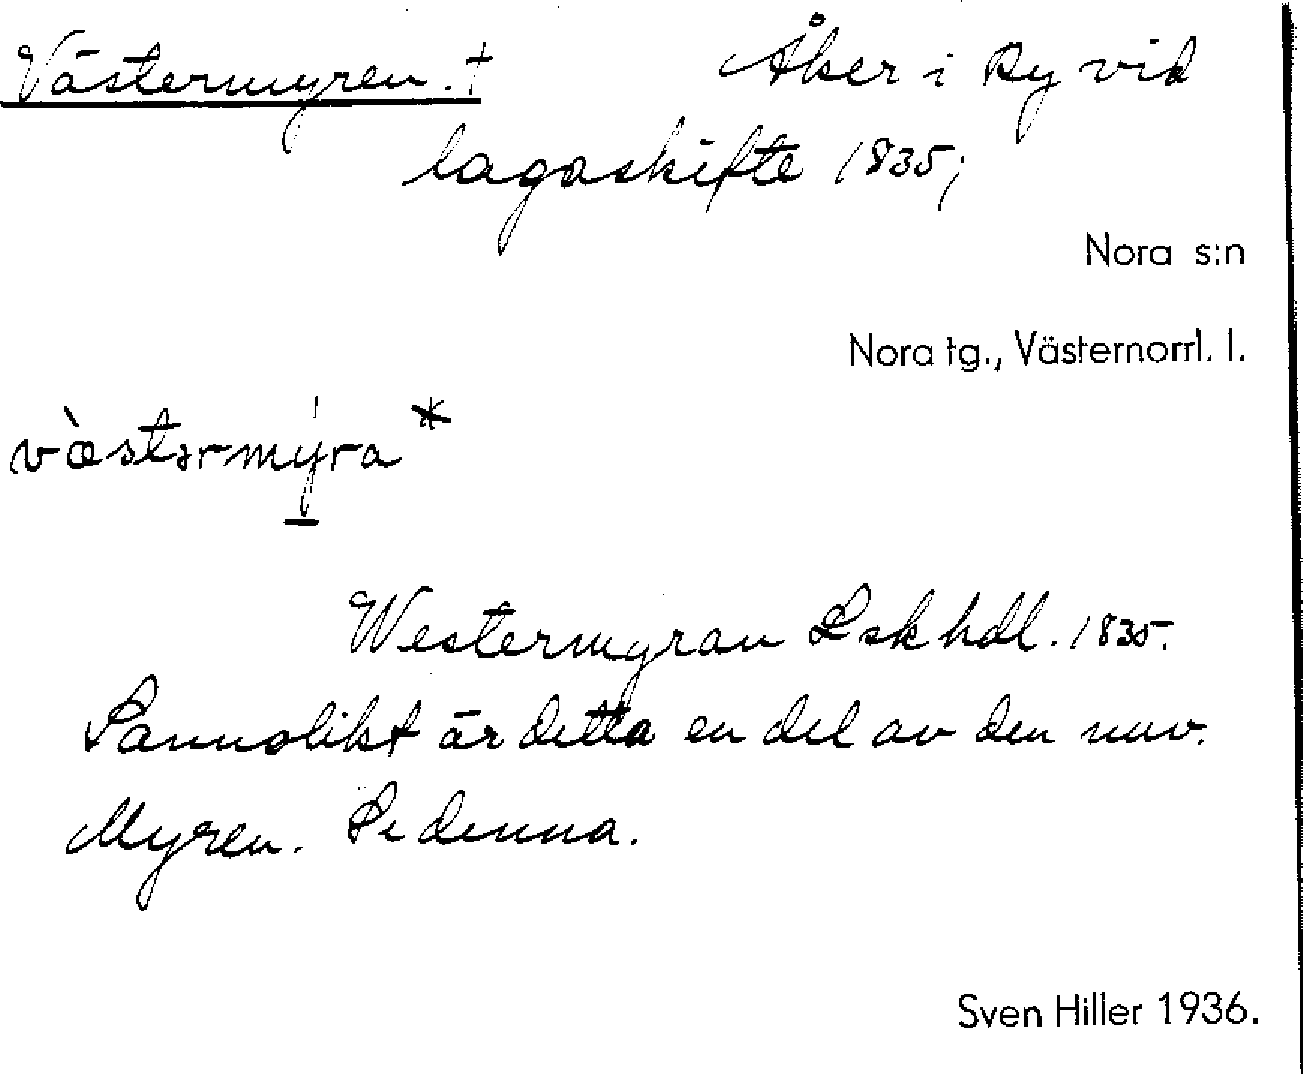 Västermyren. † Åker i Ry vid
lagaskifte 1835;
Nora s:n
Nora tg., Västernorrl. l.
vàstərmýra *
Westermyran Lskhdl. 1835.
Sannolikt är detta en del av den nuv.
Myren. Se denna.
Sven Hiller 1936.